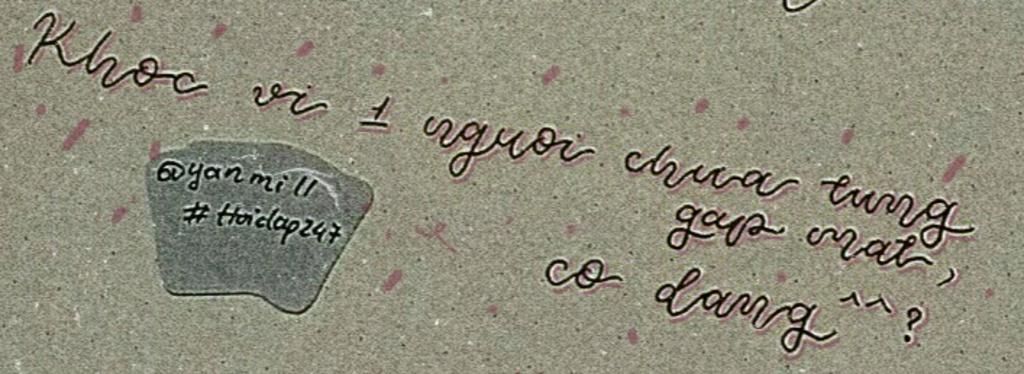 Khoc vi 1 nguoi chua tung
gap mat,
co dang ^^?
@yanmill
#Hoidap247